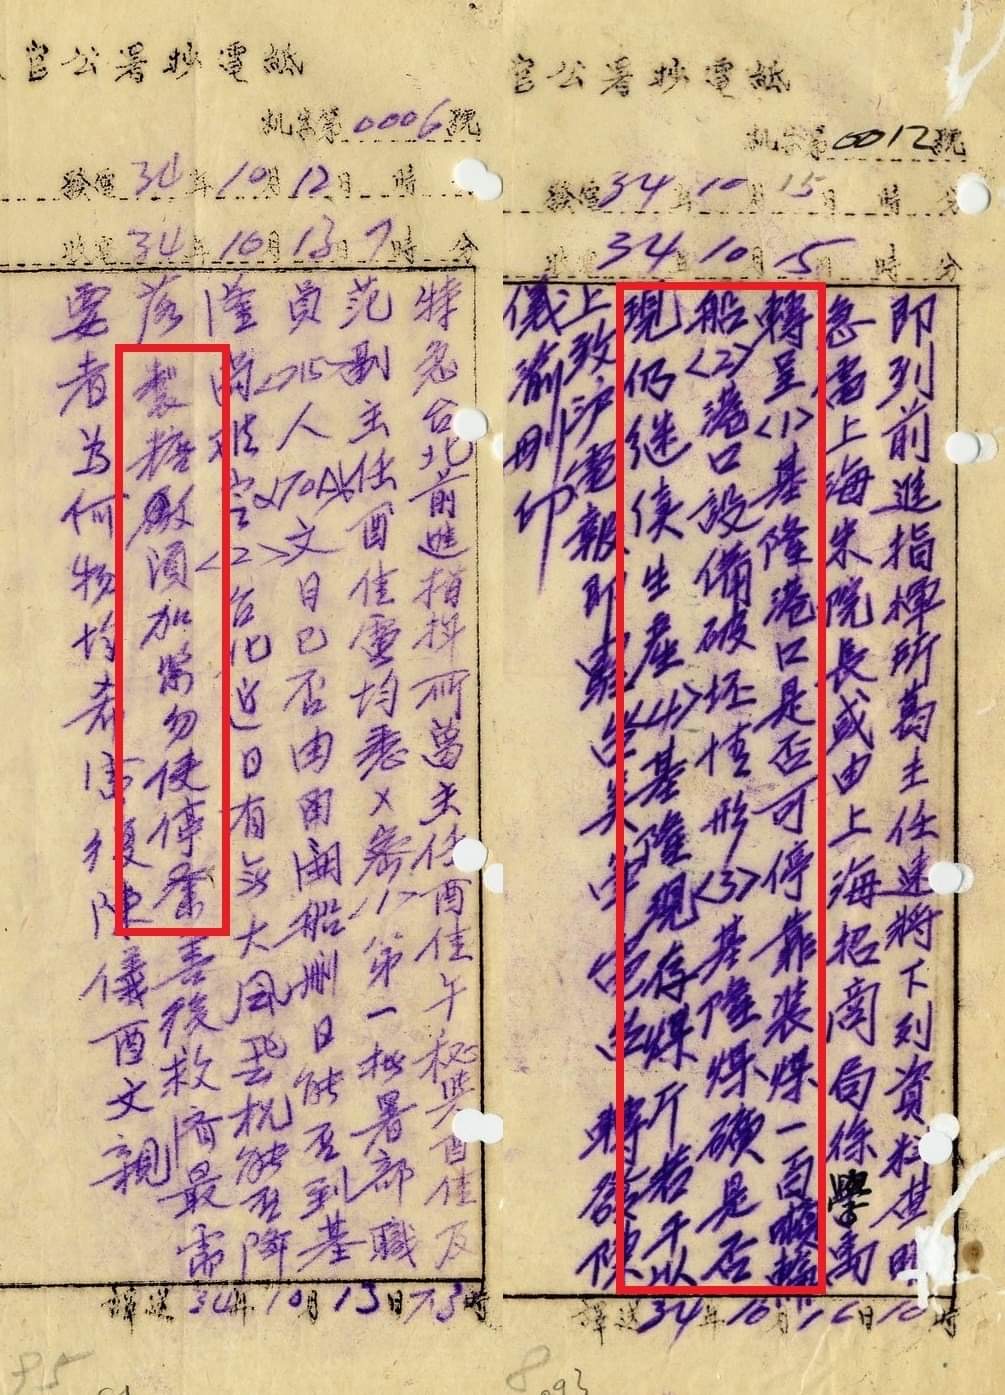 官公署抄電紙
机字第0006號
發電34年10月12日 時 分
收電34年10月13日7時 分
特急台北前進指揮所葛主任酉佳午秘與酉佳及
范副主任酉佳電均悉×密<1>第一批署部職
員 15人 文日已否由甬開船刪日能否到基
隆 <2>台北近日有無大風飛机能否降
落製糖廠須加緊勿使停業善後救濟最需
要者為何物均希電復陳儀酉文親
譯送34年10月13日 時
官公署抄電紙
机字第0012號
發電34年10月15日 時 分
收電34年10月15日 時 分
即列前進指揮所葛主任速將下列資料
急電上海朱院長或由上海招商局徐學禹
轉呈<1>基隆港口是否可停靠裝煤一百噸輪
船<2>港口設備破坯情形<3>基隆煤礦是否
現仍继续生產<4>基隆現存煤斤若干以
上致沪電報即 轉 陳
儀渝刪印
譯送34年10月16日10時